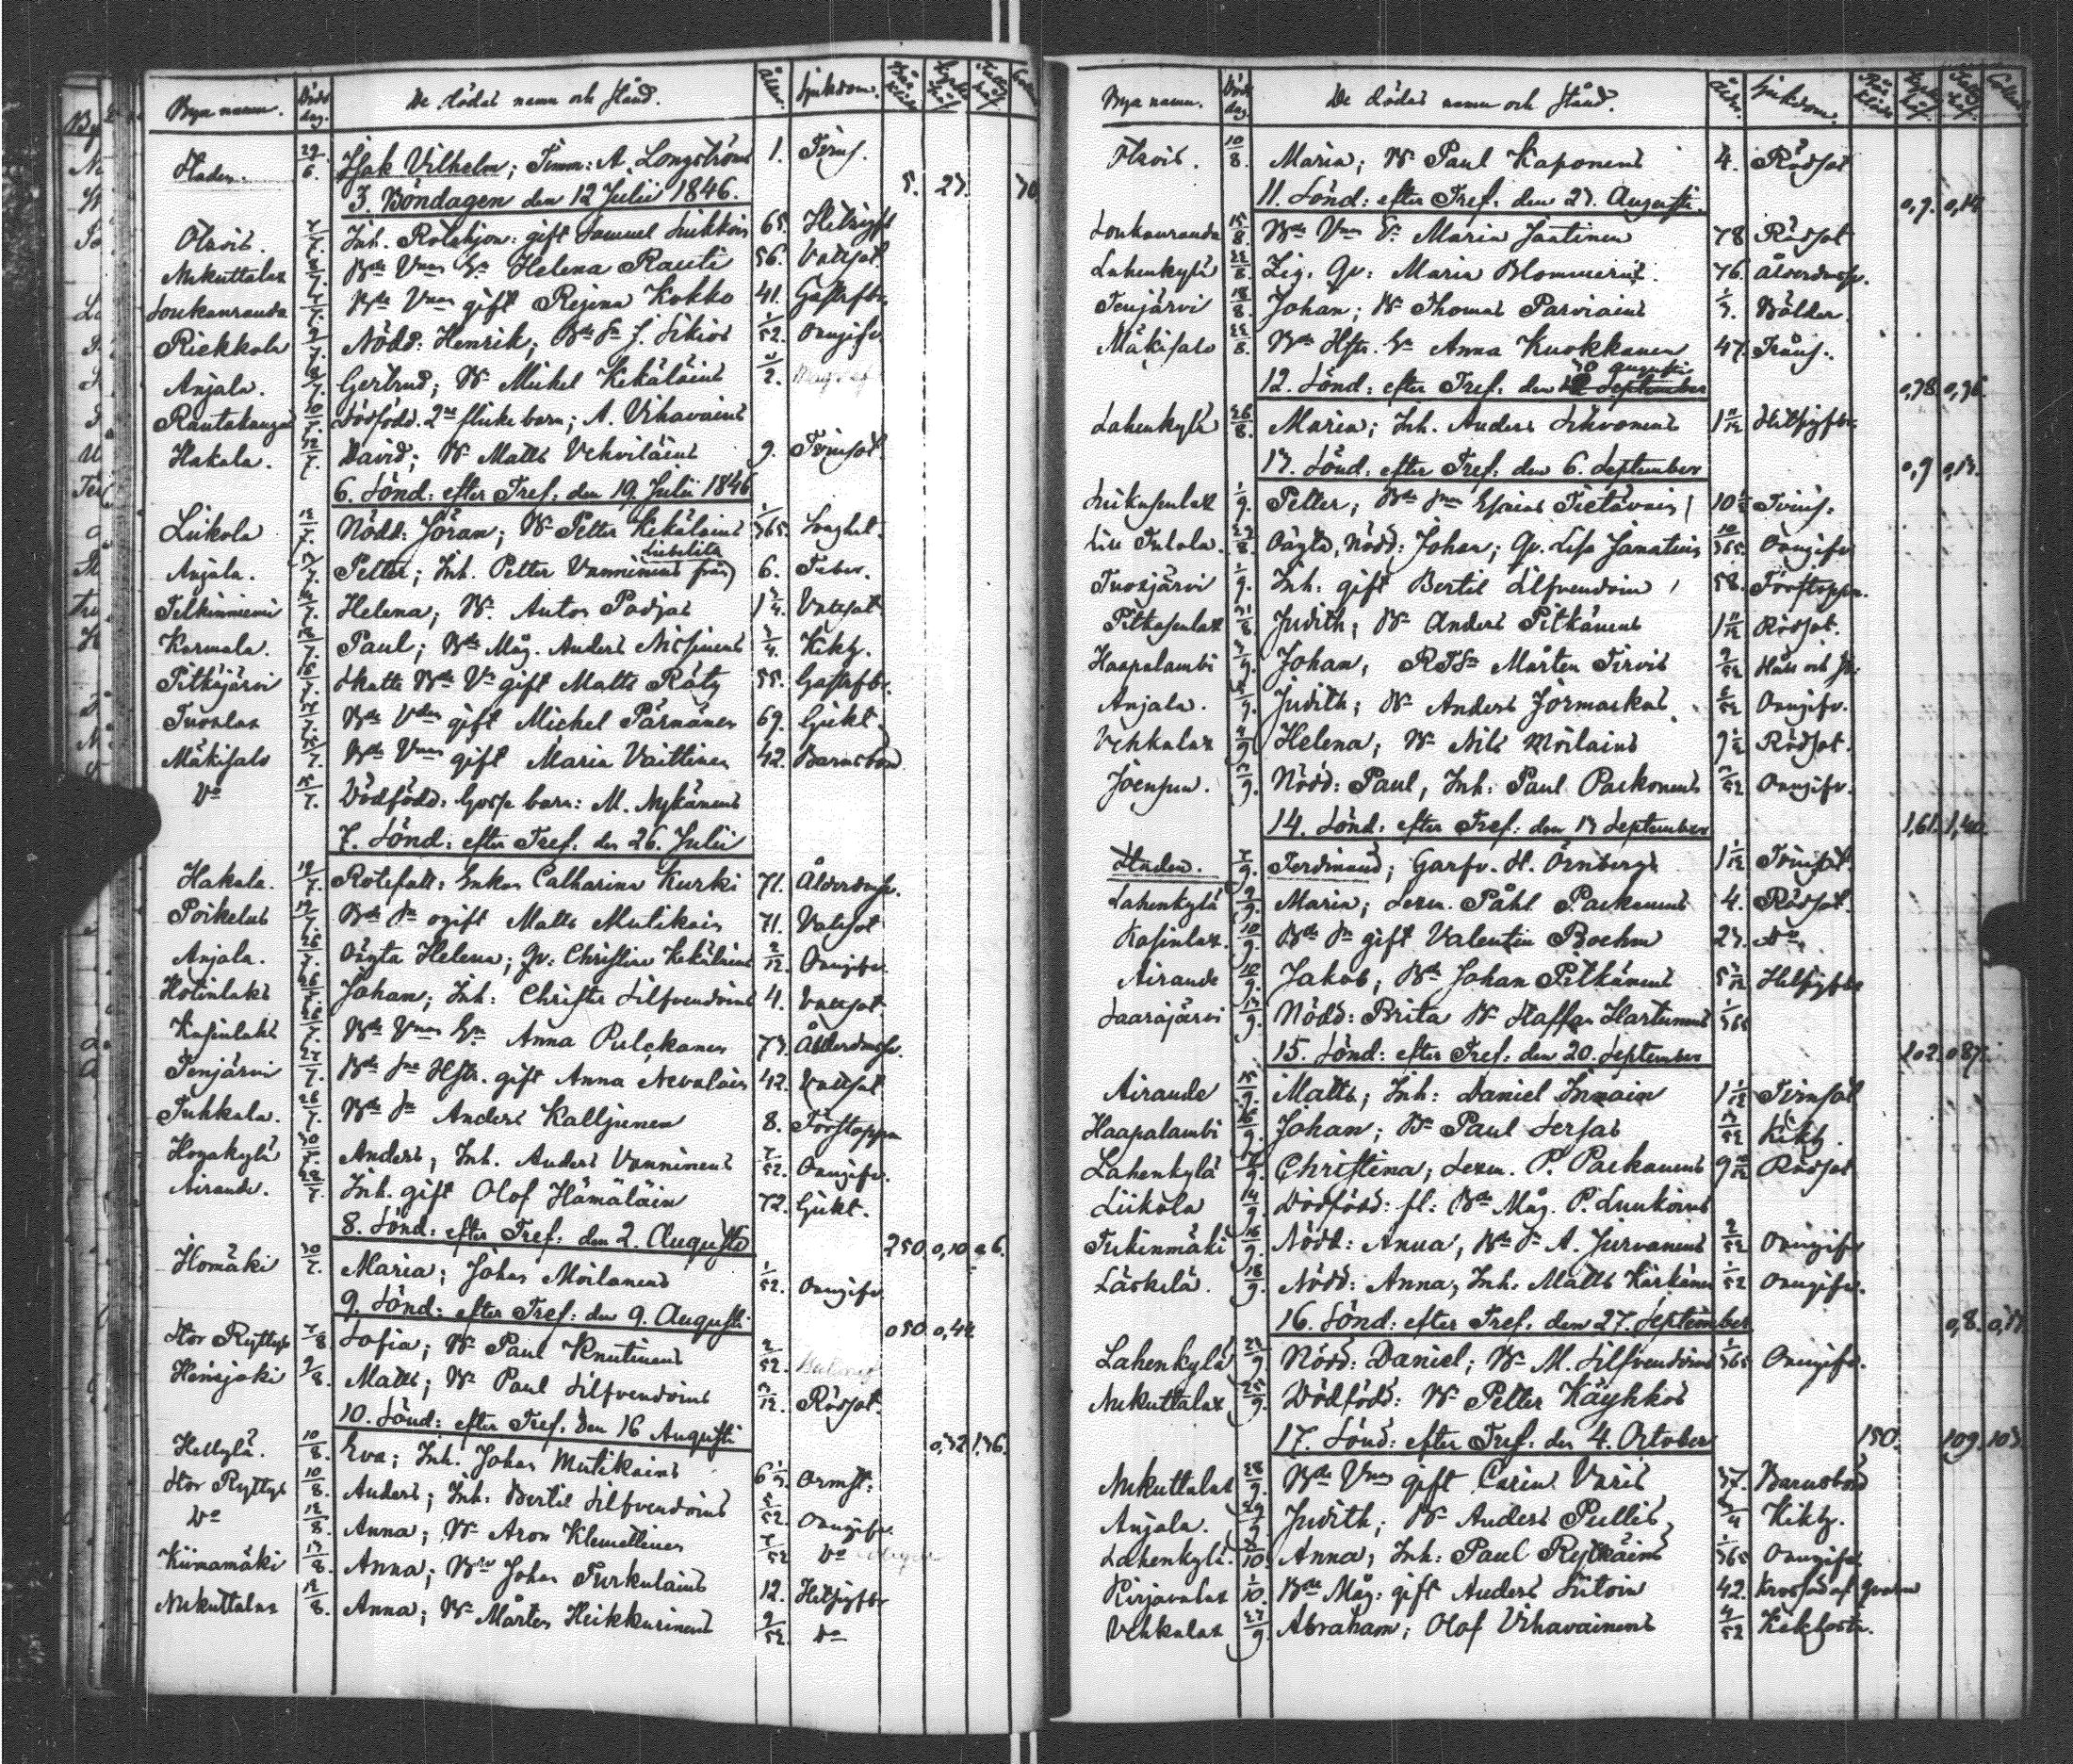 Bya namn. Döds dag. De dödas namn och stånd. Ålder. Sjukdom.
Staden. 29/6. Isak Vilhelm; Timm: A. Longströms 1. Tvins.
3. Böndagen den 12 Julii 1846. 5. 23.
Otsois. 7/7. Inh. Rotehjon: gift Samuel Luikkoin 65. Hetsigfb
Nukuttalax 8/7. Bde Vmor En Helena Rauti 56. Vattsot.
Loukanranda 7/7. Bde Vmor gift Regina Kokko 41.
Riekkala 9/7. Nödd. Henrik; Bde Sn J. Sikiös 1/52. Onngifv.
Anjala. 8/7. Gertrud; Bn Michel Kekäläins
Rautakangas 10/7. Dödfödd. 2ne flicke barn; A. Vihavains
Hakala. 12/7. David; Bn Matts Vehviläins 9. Tvinsot.
6. Sönd: efter Tref: den 19. Julii 1846
Liikola 12/7. Nödd: Göran; Bn Petter Kekäläins 1/365. Svaghet.
Anjala. 13/7. Petter; Inh. Petter Vanninens från Libelits 6. Feber.
Telkinniemi /7. Helena; Bn Anton Padjas 1 3/4. Vattsot.
Karmala. 12/7. Paul; Bde Måg. Anders Nissinens 3/4. Kikh.
Pitkäjärvi 16/7. Skatte Bde Vn gift Matts Räty 55.
Tuoslax 14/7. Bde Vden gift Michel Pärnänen 69. Gickt.
Mäkisalo 15/7. Bde Vmor gift Maria Vaittinen 42. Barnsbörd
Do 15/7. Dödfödd: Gosse barn: M. Nykänens
7. Sönd: efter Tref: den 26. Julii
Hakala. 19/7. Rotefatt: Enkan Catharina Kurki 71. Ålderdomsv.
Poikelus 19/7. Bde Sn ogift Matts Mutikain 71. Vattsot
Anjala. 26/7. Oägta Helena; Qv: Christina Kekäläins 2/12. Onngifv.
Hotinlaks 26/7. Johan; Inh: Christer Silfvendoins 4. Vattsot.
Kasinlaks 26/7. Bde Vmor En Anna Pulckanen 73. Ålderdomsv.
Tenjärvi 27/7. Bde Sne Hstr. gift Anna Nevalain 42. Vattsot
Puhkala. 26/7. Bde Sn Anders Kalljunen 8. Förstoppn
Hogakylä 30/7. Anders; Inh. Anders Vanninens 7/52. Onngifv.
Airande. 28/7. Inh. gift Olof Hämäläin 72. Gickt.
8. Sönd: efter Tref: den 2. Augusti 250 0,10
Ihomäki 30/7. Maria; Johan Moilanens 1/52. Onngifv
9. Sönd: efter Tref: den 9. Augusti 050
Stor Ryttys 7/8. Sofia; Bn Paul Knutinens 2/52.
9/8. Matts; Bn Paul Silfvendoins /12. Rödsot.
10. Sönd: efter Tref. den 16 Augusti 0,32 1,36.
Hellylä. 10/8. Eva; Inh. Johan Mutikains 6 1/2. Ormst:
Stor Ryttys 10/8. Anders; Inh: Bertil Silfvendoins 5/52. Onngifv.
Do 12/8. Anna; Bn Aron Klemettinen 7/52 Do
Kiimamäki 13/8. Anna; Bn Johan Turkulains 12. Hetsigfbr
Nukuttalax 12/8. Anna; Bn Mårten Heikkurinens 9/52. Do
Bya namn. Döds dag. De dödas namn och stånd. Ålder. Sjukdom.
Otsois. 10/8. Maria; Bn Paul Kaponens 4. Rödsot
11. Sönd: efter Tref: den 23. Augusti. 0,9.
Loukanranda 15/8. Bde Vmor En Maria Jantinen 78 Rödsot
Lahenkylä 22/8. Zig. Qv: Maria Blommerus. 76. Ålderdomsv.
Tenjärvi 18/8. Johan; Bn Thomas Parviains Bölder.
Mäkisalo 22/8. Bde Hstr. En Anna Kuokkanen 47. Tråns.
12. Sönd: efter Tref: den 30 augusti September 0,38. 0,36.
Lahenkylä 26/8. Maria; Inh. Anders Sihvonens 1 11/12 Hetsigfbr.
13. Sönd: efter Tref: den 6. September 0,9
Luikasenlax 1/9. Petter; Bde Sons Esaias Tietäväin 10 Tvins.
Lill Tulola. 29/8. Oägta, Nödd: Johan; Qv. Lisa Janatuin 10/365. Onngifv
Tuoxjärvi 1/9. Inh. gift Bertil Silfvendoin 58. Förstoppn.
Pitkasenlax 31/8. Judith; Bn Anders Pitkänens 1 11/12 Rödsot.
Haapalambi 3/9. Johan, RTSn Mårten Tirvis 2/52
Anjala. 5/9. Judith; Bn Anders Jormackas 2/52 Onngifv.
Vehkalax 4/9. Helena; Bn Nils Moilains 9 1/2 Rödsot.
Joensuu. /9. Nödd: Paul, Inh: Paul Paekonens 3/52 Onngifv.
14. Sönd: efter Tref: den 13 September 1,61. 1,40.
Staden. 7/9. Ferdinand; Garfv. H. Örnbergs 1 1/12 Tvinsot.
Lahenkylä 9/9. Maria; Lexm. Påhl Paekanens 4. Rödsot.
Kasinlax. 10/9. Bde Sn gift Valentin Boehm 23. Do
Airande 10/9. Jakob; Bde Johan Pitkänens 5 Hetsigfbr
Saarajärvi 13/9. Nödd: Brita Bn Staffan Hartunens 1/365
15. Sönd: efter Tref: den 20. September 102. 087.
Airande 15/9. Matts; Inh: Daniel Immain 1 1/12 Tvinsot
Haapalambi 16/9. Johan; Bn Paul Sersas 13/52 Kikh.
Lahenkylä /9. Christina; Lexm. P. Paekanens 9 10/12 Rödsot
Liikola 14/9. Dödfödd: fl: Bde Måg. P. Luukoins
Tukinmäki 16/9. Nödd: Anna; Bde Sn A. Jurvanens 2/52 Onngifv
Läskelä. 18/9. Nödd: Anna; Inh. Matts Kärkänen 1/52 Onngifv.
16. Sönd: efter Tref. den 27. September 0,8.
Lahenkylä 24/9 Nödd: Daniel; Bn M. Silfvendoins 1/365 Onngifv.
Nukuttalax 25/9. Dödfödd: Bn Petter Käyhkös
17. Sönd: efter Tref: den 4. October 150. 109. 103.
Nukuttalax 28/9. Bde Vmor gift Carin Varis 37. Barnsbörd
Anjala. 29/9. Judith; Bn Anders Pullis 3/4 Kikh.
Lahenkylä. 2/10. Anna; Inh: Paul Rytkäins 1/365 Onngifv.
Kirjavalax 1/10. Bde Måg: gift Anders Siitoin 42. Krossad af Qvarn
Vehkalax 27/9. Abraham; Olof Vihavainens 4/52 Kikhosta.